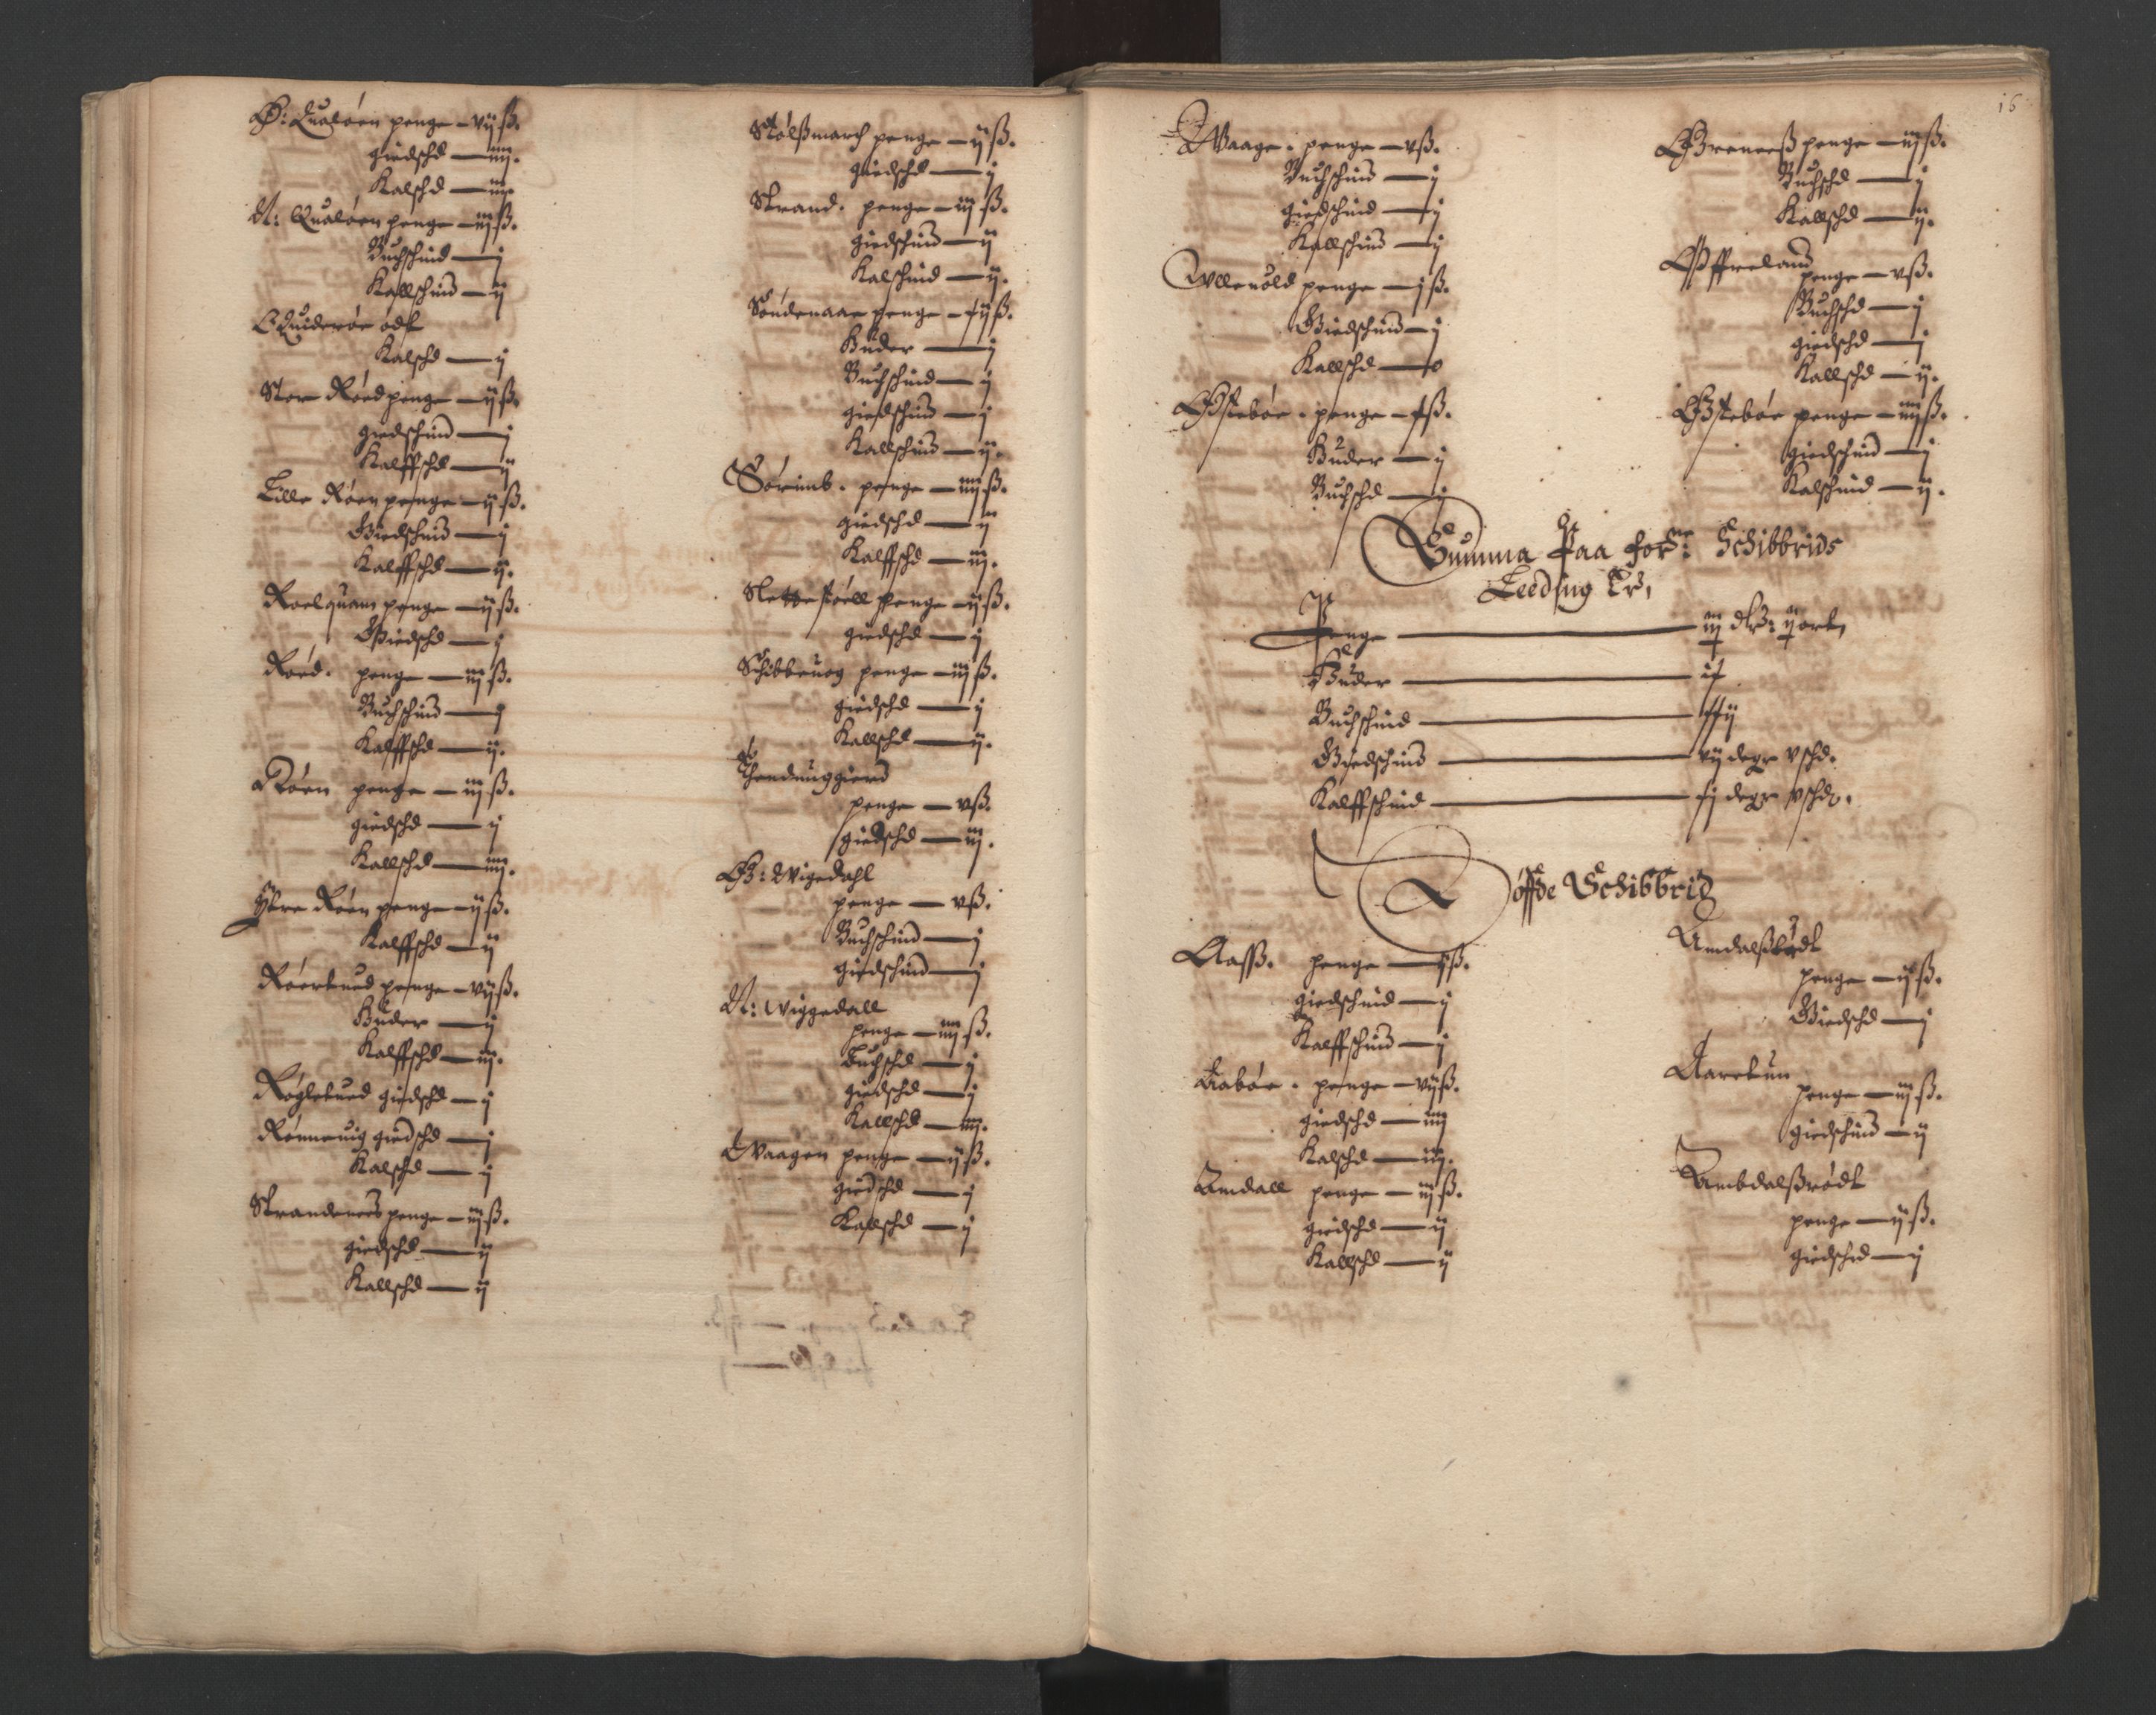 Ø: Qualøen penge – vij ß.
giedschd — iiij.
Kalschd — iij.
N: Qualøen penge – iij ß.
Buchschind — j
Kallschind — ij
Quiderøe ødt
Kalschd — ij
Stor Røed penge – ij ß.
giedschind — j
Kalffschd — ij
Lille Røen penge – ij ß.
Giedschind — j
Kalffschd — ij.
Roelquam penge – ij ß.
Giedschd — j
Røed. penge — iij ß.
Buchschind — j
Kalffschd — ij.
Røen penge — iij ß.
giedschd — ij
Kallschd — iiij.
Ytre Røen penge – ij ß.
Kalffschd — ij
Røerkued penge – vij ß.
Huder — ij
Kalffschd — iij.
Røglekued giedschd — ij
Rønneuig giedschd — j
Kalschd — ij
Strandenees penge – iij ß.
giedschd — ij
Kallschd — ij
Stølßmarch penge – ij ß.
giedschd — j
Strand. penge – iij ß.
giedschind — ij
Kalschind — ij.
Søndenaae penge – xij ß.
Huder — j
Buchschind — ij
giedschind — j
Kallschind — ij.
Sørimb. penge — iiij ß.
giedschd — ij
Kalffschd — iij.
Slettestøell penge – ij ß.
giedschd — ij
Schibbeuog penge – iij ß.
giedschd — j
Kallschd — ij.
Thendinggierd
penge — v ß.
giedschd — iij.
Ø: Wigedahl
penge — v ß.
Buchschind — j
giedschind — j
N: Wiggedall
penge — iiij ß.
Buchschd — ij
giedschd — j
Kallschd — iiij.
Waagen penge — ij ß.
giedschd — j
Kallschd — ij
16
Waage. penge — v ß.
Buchschind — j
giedschind — j
Kallschind — ij
Ulleuold penge — j ß.
Giedschind — j
Kallschd — o
Østebøe. penge – x ß.
Huder — ij
Buchschd — ij
Greneeß penge — iij ß.
Buchschd — j
Kallschd — ij.
Øffreland
penge — v ß.
Buchschd — j
giedschd — j
Kallschd — ij.
Østebøe penge — iiij ß.
giedschind — j
Kalschind — ij.
Summa Paa for:ne Schibbrids
Leeding Er,
Penge — iij dlr: ij ort,
Huder — ix
Buchschind — xxij
Giedschind — vij degr v schd.
Kalffschind — xj degr v schd.
Toffde Schibbrid
Aaß. penge — ij ß.
giedschind — ij
Kalffschind — j
Aabøe. penge – vij ß.
giedschd — iiij
Kalschd — iij.
Amdall penge – iij ß.
giedschd — ij
Kallschd — ij
Amdalß
penge — ij ß.
Giedschd — j
Aarekun
penge — iij ß.
giedschind — ij
Ambdalßrødt
penge — ij ß.
giedschd — j